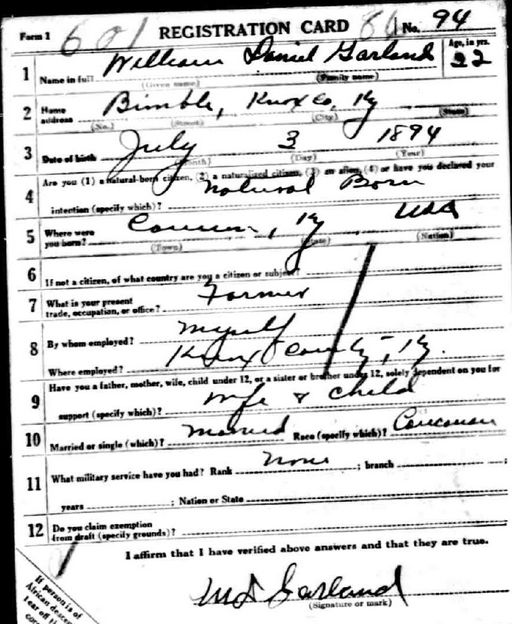 Form 1 601 REGISTRATION CARD No. 94
1 Name in full William Daniel Garland Age, in yrs. 22
(Given name) (Family name)
2 Home address Bimble, Knox Co, Ky
(No.) (Street) (City) (State)
3 Date of birth July 3 1894
(Month) (Day) (Year)
4 Are you (1) a natural-born citizen, (2) a naturalized citizen, (3) an alien, (4) or have you declared your
intention (specify which)? Natural Born
5 Where were you born? Ky USA
(Town) (State) (Nation)
6 If not a citizen, of what country are you a citizen or subject?
7 What is your present trade, occupation, or office? Farmer
8 By whom employed? Myself
Where employed? Knox County, Ky.
9 Have you a father, mother, wife, child under 12, or a sister or brother under 12, solely dependent on you for
support (specify which)? Wife & Child
10 Married or single (which)? Married Race (specify which)? Caucasian
11 What military service have you had? Rank None ; branch ;
years ; Nation or State
12 Do you claim exemption from draft (specify grounds)?
I affirm that I have verified above answers and that they are true.
W D Garland
(Signature or mark)
If person is of
African